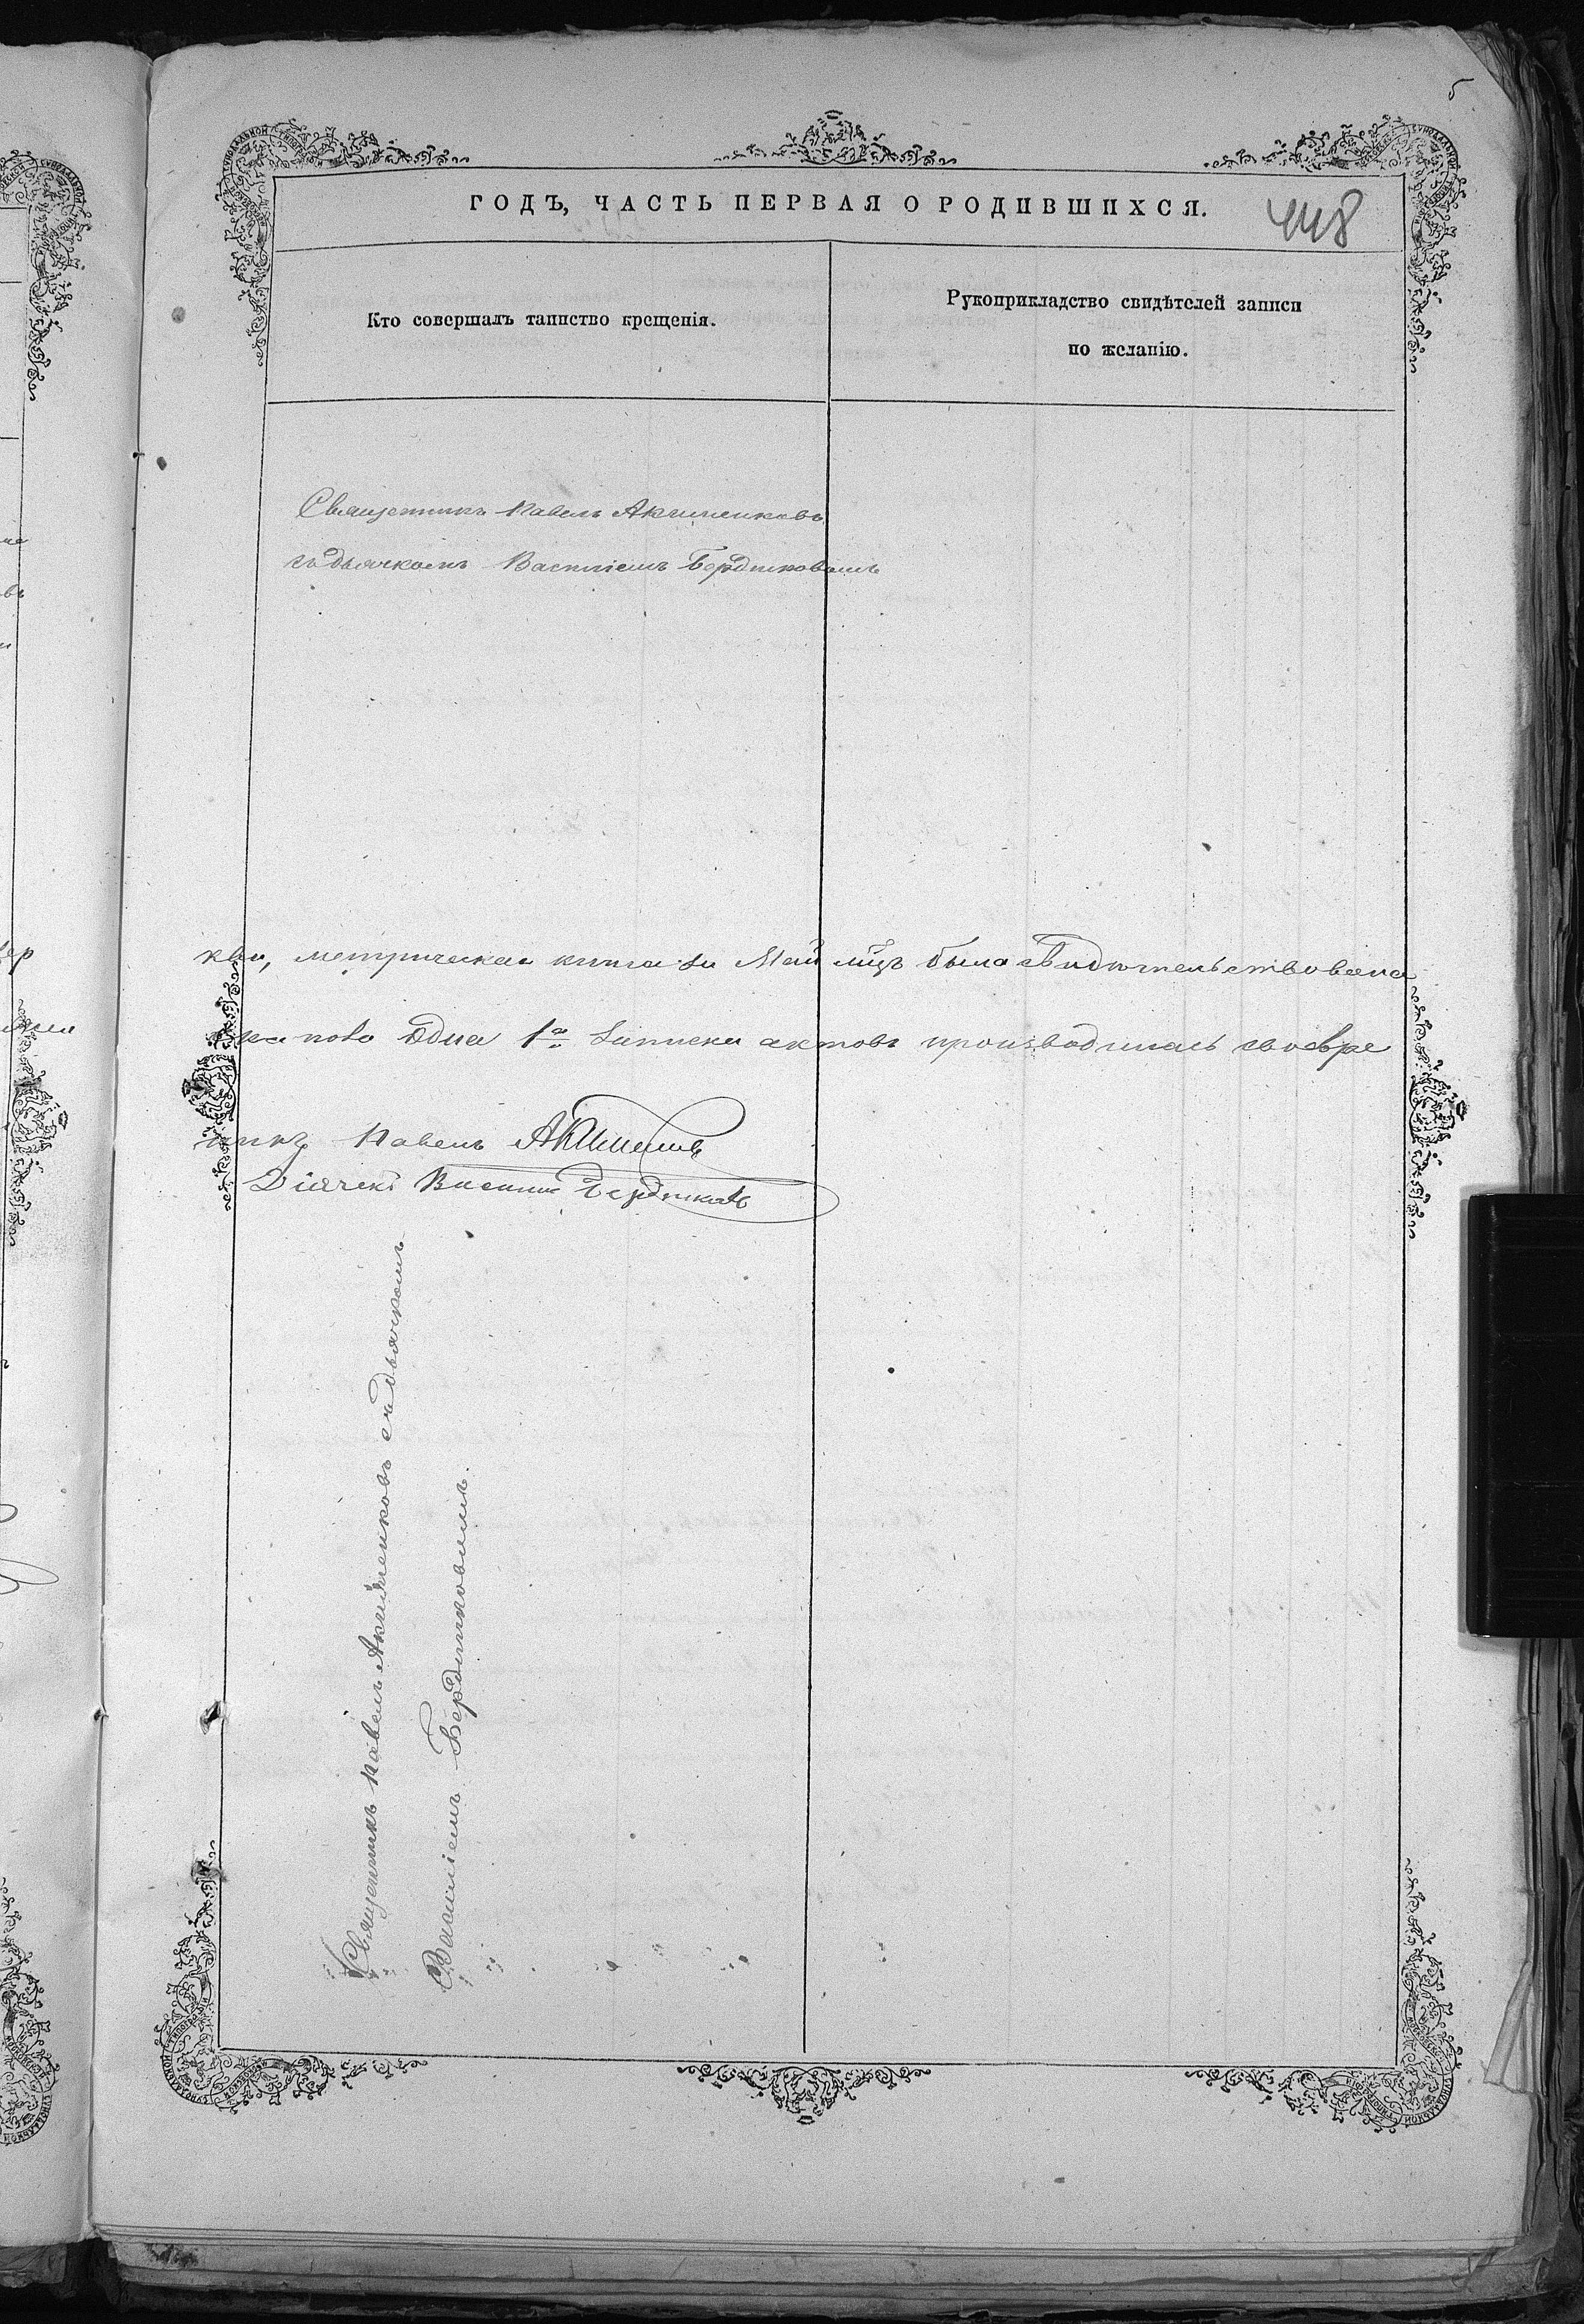 5
ГОДЪ, ЧАСТЬ ПЕРВАЯ О РОДИВШИХСЯ.
448
Кто совершалъ таинство крещенія.
Рукоприкладство свидѣтелей записи
по желанію.
Священникъ Павелъ Акименковъ
съ дьячкомъ Василіемъ Бердниковымъ
кви, метрическая книга за Май мцъ была свидѣтельствована
одна 1а записка актовъ производилась своевре
никъ Павелъ Акименко
Дьячекъ Василий Бердниковъ
Священникъ Павелъ Акименковъ съ дьячкомъ
Василіемъ Бердниковымъ.